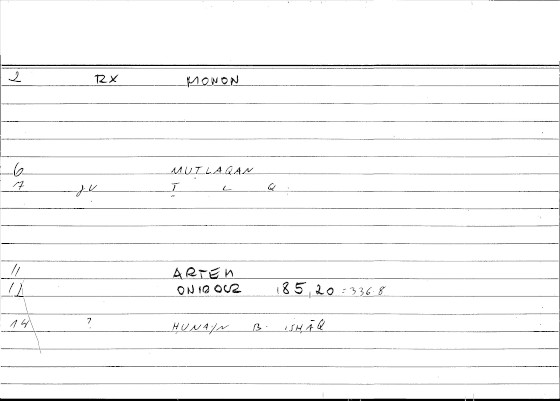 2 RX MONON
6 MUTLAQAN
7 gv Ṭ L Q
11 ARTEM
12 ONIROCR 185,20 = 336.8
14 ? HUNAYN B. ISHĀQ